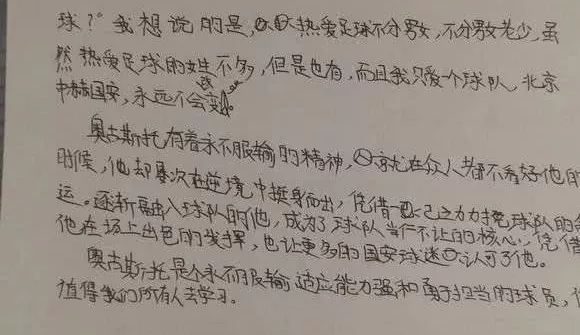 球?"我想说的是,热爱足球不分男女,不分男女老少,虽
然热爱足球的女生不多,但是也有,而且我只爱一个球队,北京
中赫国安,永远不会变。
奥古斯托有着永不服输的精神,就在众人都不看好他的
时候,他却屡次在逆境中挺身而出,凭借一己之力扛起球队的
运。逐渐融入球队的他,成为了球队当仁不让的核心,凭借
他在场上出色的发挥,也让更多的国安球迷认可了他。
奥古斯托是个永不服输 适应能力强和勇于担当的球员,
值得我们所有人去学习。